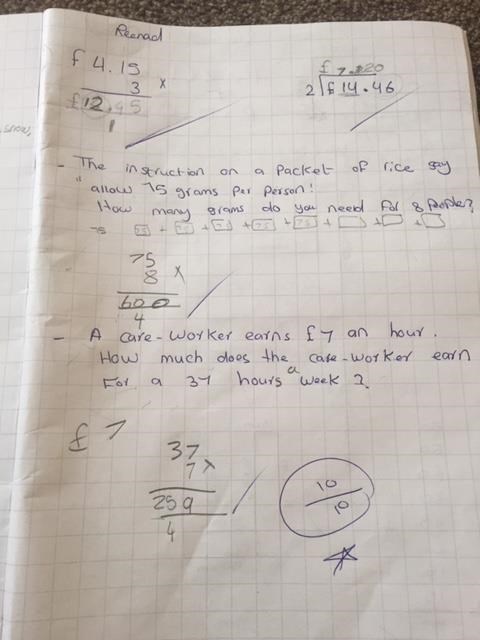 £ 4.15
3 x
£12.45
1
£ 7.20
2 £14.46
- The instruction on a Packet of rice say
"allow 75 grams per person!
How many grams do you need for 8 people?
75 75 + 75 + 75 + 75 + 75 + + +
75
8 x
600
4
- A care-worker earns £7 an hour.
How much does the care-worker earn
For a 37 hours a week?
£ 7
37
7 x
259
4
10
10